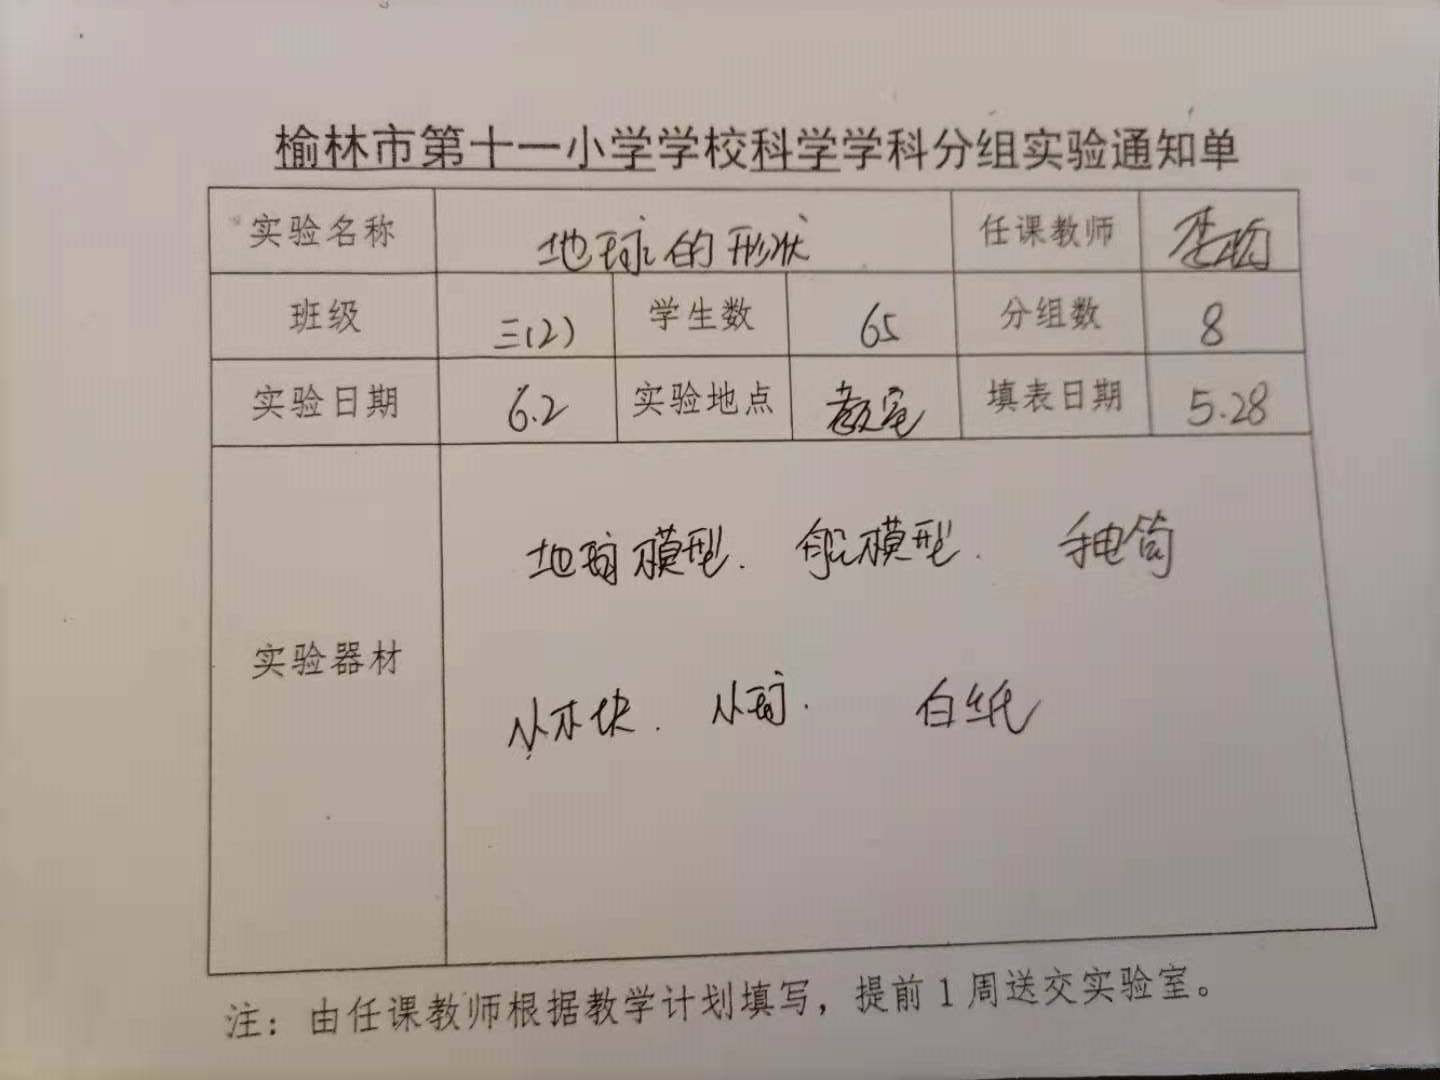 榆林市第十一小学学校科学学科分组实验通知单
实验名称 地球的形状 任课教师 李
班级 三(2) 学生数 65 分组数 8
实验日期 6.2 实验地点 教室 填表日期 5.28
实验器材
地球模型. 船模型. 手电筒
小木块. 小球. 白纸
注：由任课教师根据教学计划填写，提前1周送交实验室。